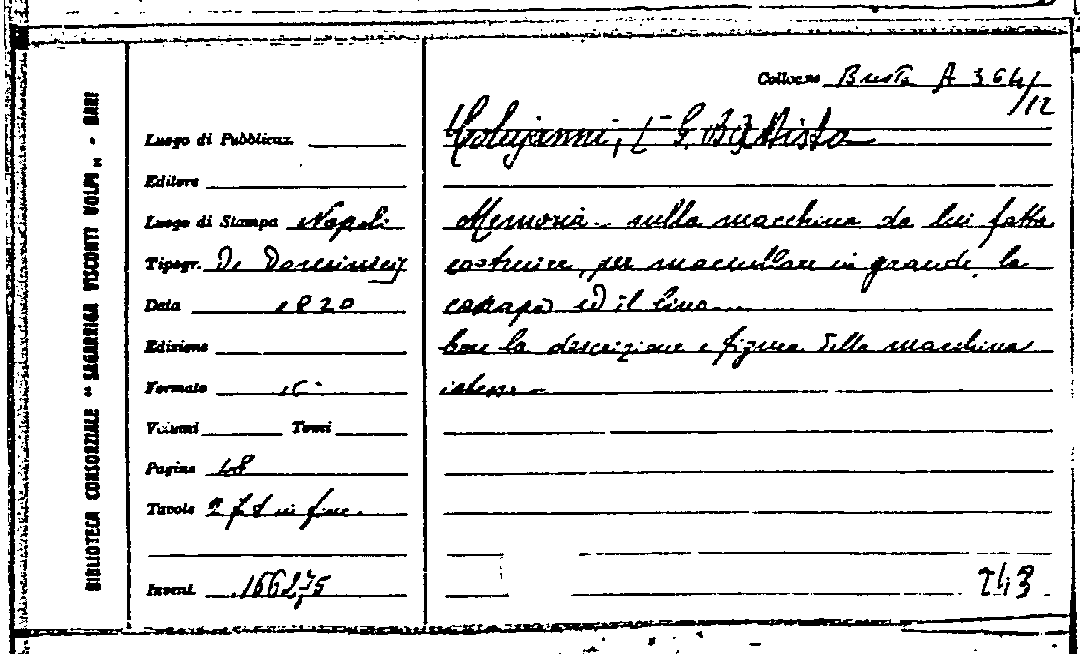 BIBLIOTECA CONSORZIALE "SAGARRIGA VISCONTI VOLPI" - BARI
Collocaz. Busta A 364/12
Luogo di Pubblicaz.
Editore
Luogo di Stampa Napoli
Tipogr. De
Data 1820
Edizione
Formato
Volumi Tomi
Pagine 48
Tavole 2 f.t. in fine.
Invent. 166275
Colujanni, G. Battista
Memoria sulla macchina da lui fatta
costruire, per maciullare in grande la
canapa ed il lino...
Con la descrizione e figura della macchina
istessa
243